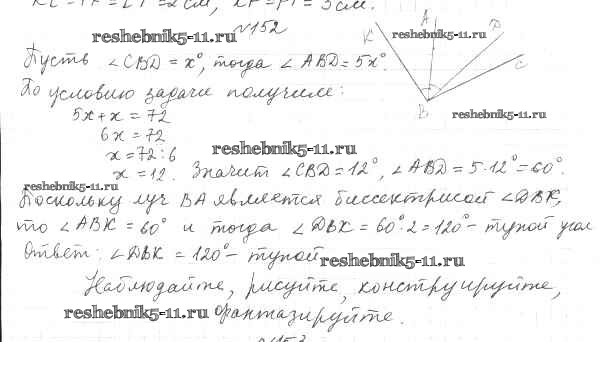 KE = PK = ET = 2 см, KP = PT = 3 см.
№152
reshebnik5-11.ru
Пусть ∠CBD = x°, тогда ∠ABD = 5x°.
К A D C B
reshebnik5-11.ru
reshebnik5-11.ru
По условию задачи получим:
5x + x = 72
6x = 72
x = 72 : 6
reshebnik5-11.ru
x = 12. Значит ∠CBD = 12°, ∠ABD = 5·12° = 60°.
reshebnik5-11.ru
Поскольку луч BA является биссектрисой ∠DBK,
то ∠ABK = 60° и тогда ∠DBK = 60°·2 = 120° – тупой угол
Ответ: ∠DBK = 120° – тупой
reshebnik5-11.ru
Наблюдайте, рисуйте, конструируйте,
reshebnik5-11.ru фантазируйте.
№153